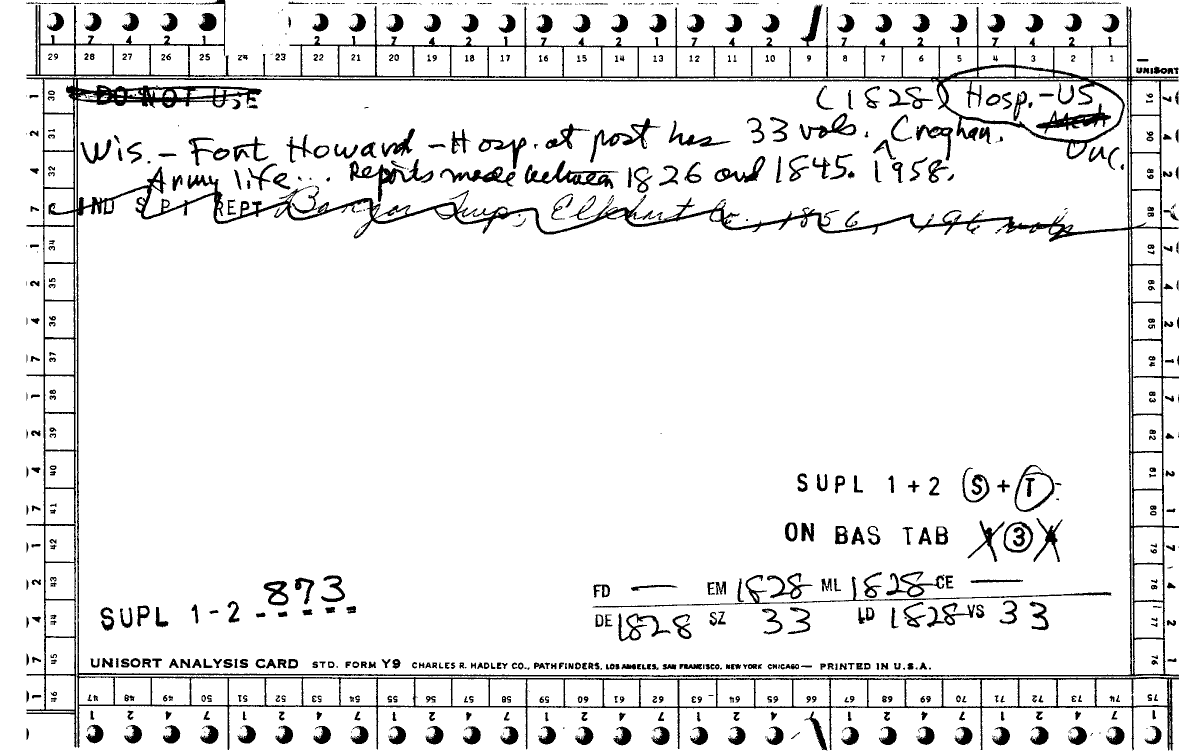 1 7 4 2 1 2 1 7 4 2 1 7 4 2 1 7 4 2 1 7 4 2 1
29 28 27 26 25 24 23 22 21 20 19 18 17 16 15 14 13 12 11 10 9 8 7 6 5 4 3 2 1
UNISORT
DO NOT USE (1828) Hosp.-US
Wis. - Fort Howard - Hosp. at post has 33 vols. Croghan. Unc.
Army life... Reports made between 1826 and 1845. 1958.
IND SPI REPT Bangor Twp, Elkhart Co., 1856, 196 vols
SUPL 1+2 S+T
ON BAS TAB 1 3 4
SUPL 1-2 873
FD — EM 1828 ML 1828 CE —
DE 1828 SZ 33 LD 1828 VS 33
UNISORT ANALYSIS CARD STD. FORM Y9 CHARLES R. HADLEY CO., PATHFINDERS, LOS ANGELES, SAN FRANCISCO, NEW YORK CHICAGO— PRINTED IN U.S.A.
47 48 49 50 51 52 53 54 55 56 57 58 59 60 61 62 63 64 65 66 67 68 69 70 71 72 73 74 75